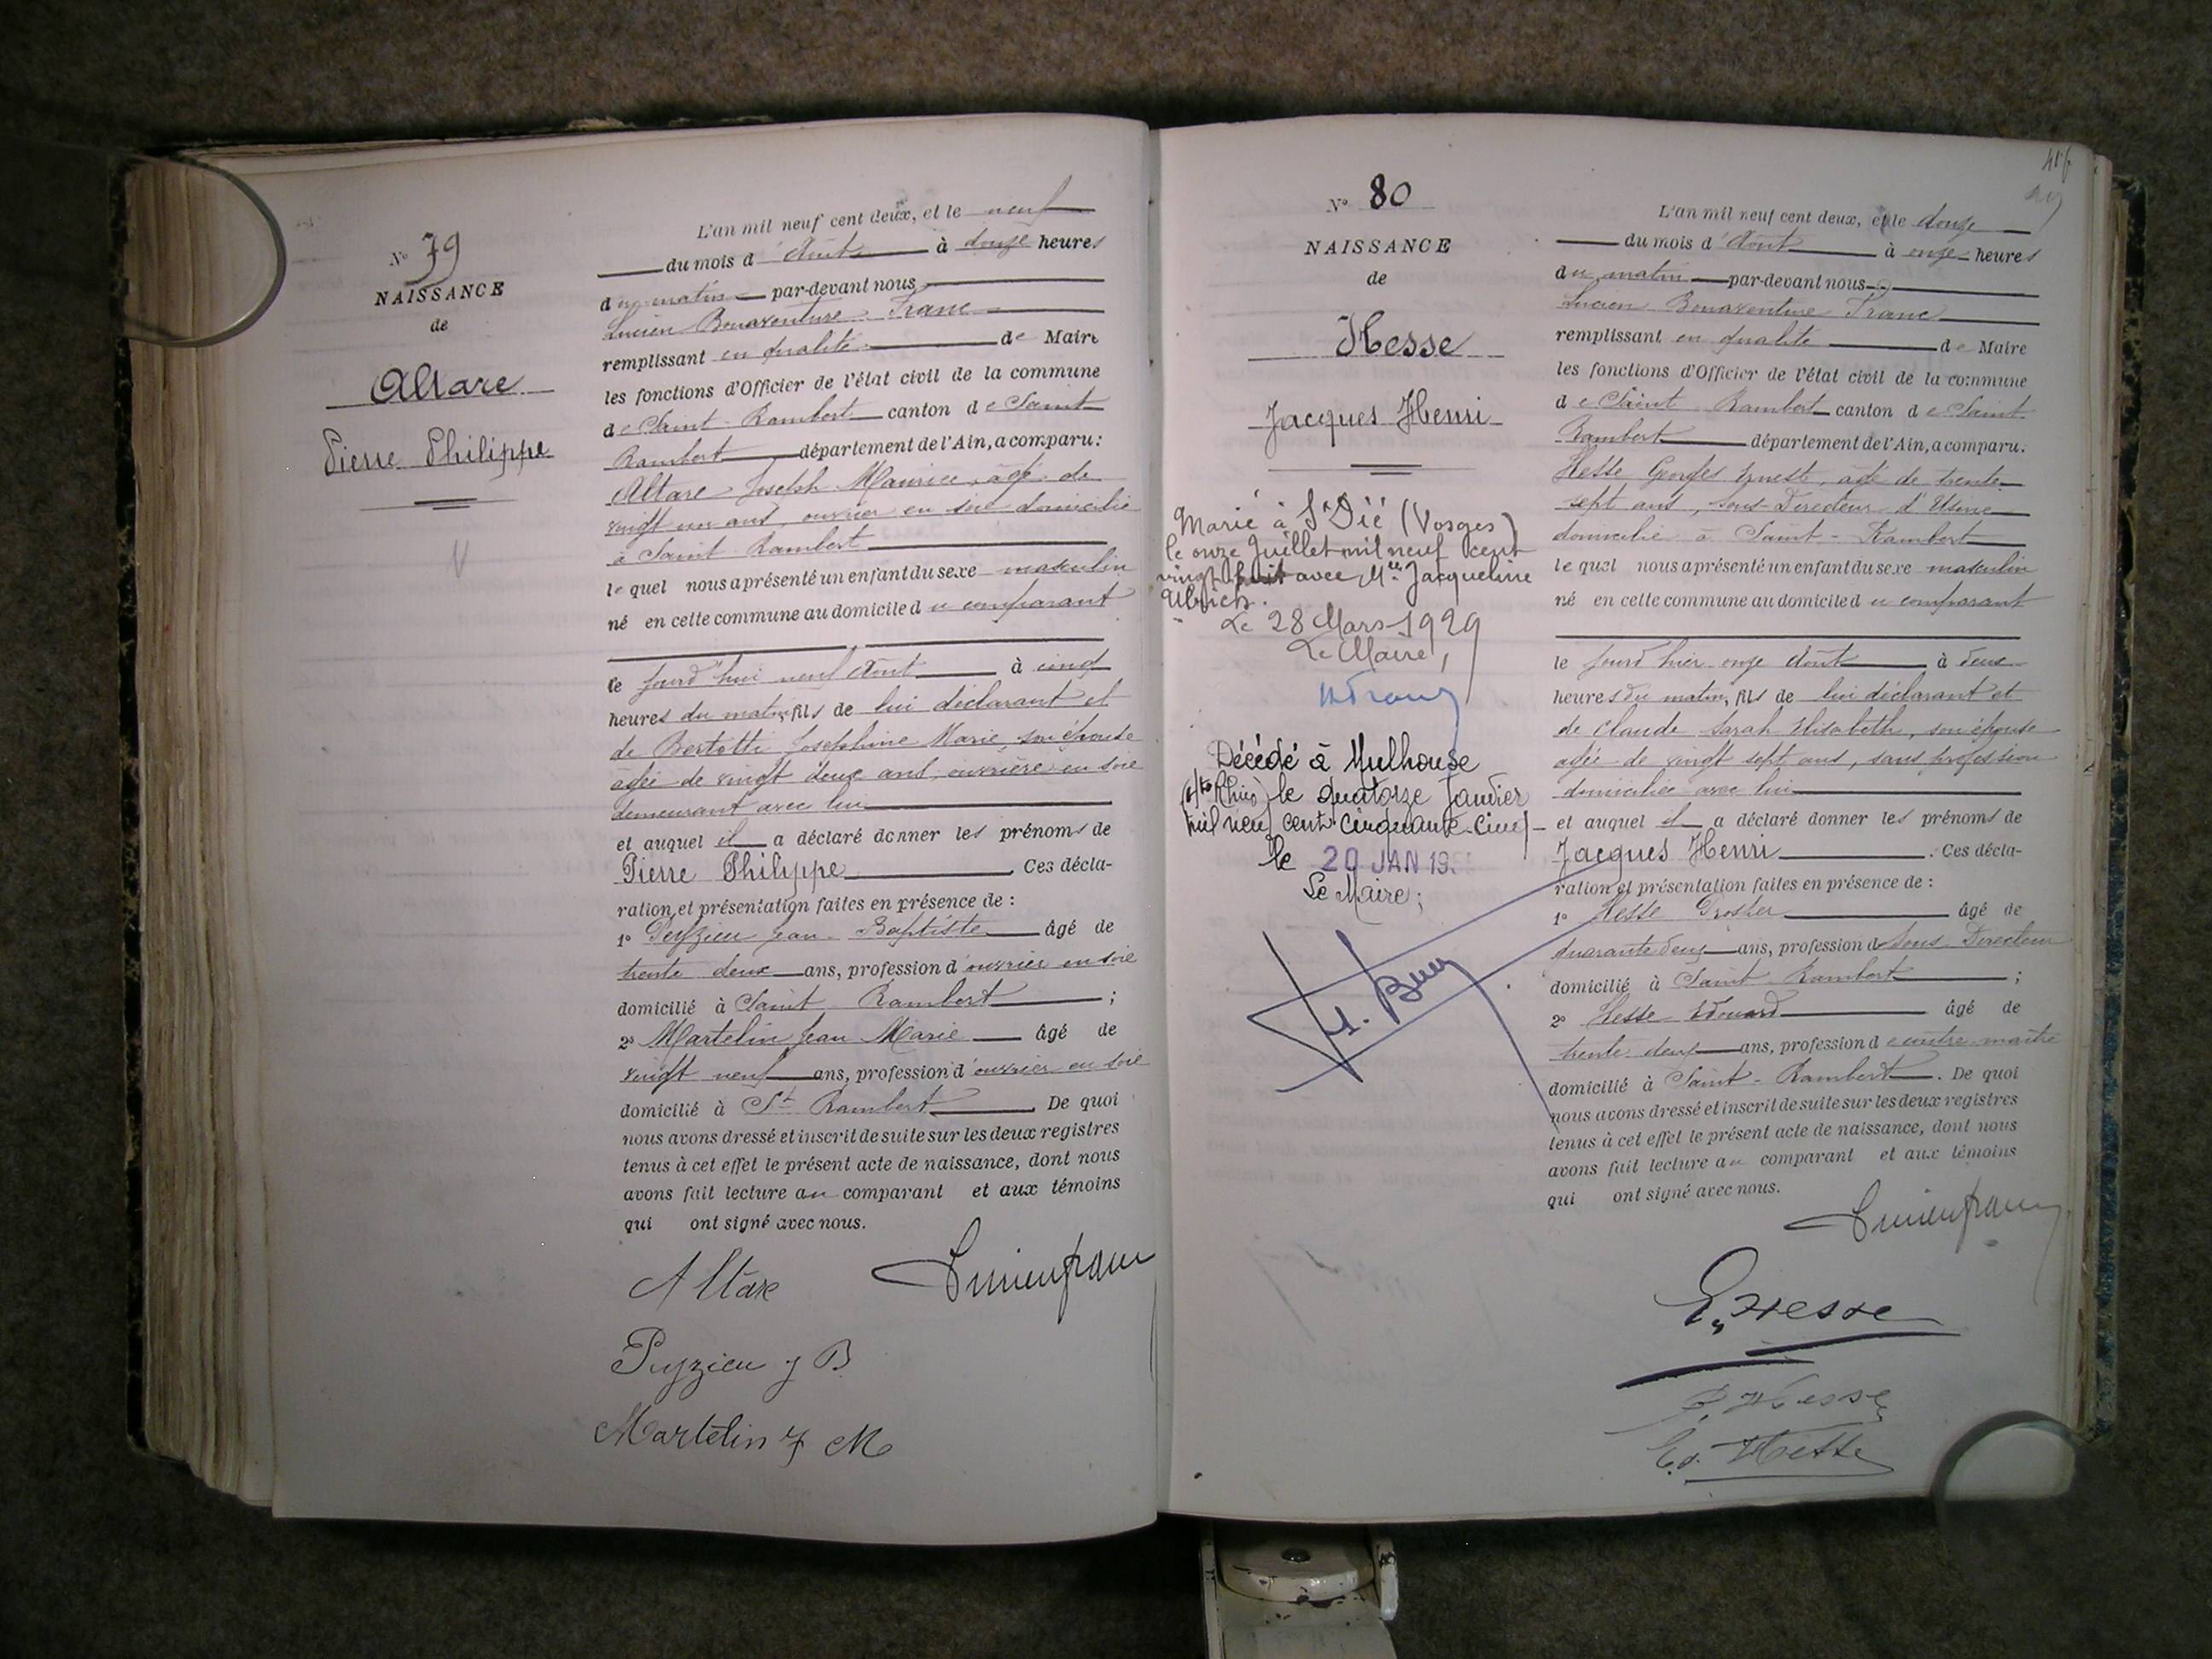 N° 79
NAISSANCE
de
Altare
Pierre Philippe
L'an mil neuf cent deux, et le neuf
du mois d'Août à douze heures
du matin par-devant nous
Lucien Bonaventure Franc
remplissant en qualité de Maire
les fonctions d'Officier de l'état civil de la commune
de Saint-Rambert canton de Saint
Rambert département de l'Ain, a comparu:
Altare Joseph Maurice, âgé de
vingt un ans, ouvrier en soie domicilié
à Saint Rambert
lequel nous a présenté un enfant du sexe masculin
né en cette commune au domicile du comparant
le jourd'hui neuf Août à cinq
heures du matin, fils de lui déclarant et
de Bertotti Joséphine Marie, son épouse
agée de vingt deux ans, ouvrière en soie
demeurant avec lui
et auquel il a déclaré donner les prénoms de
Pierre Philippe. Ces décla-
ration et présentation faites en présence de :
1° Peyzieu Jean Baptiste âgé de
trente deux ans, profession d'ouvrier en soie
domicilié à Saint Rambert ;
2° Martelin Jean Marie âgé de
vingt neuf ans, profession d'ouvrier en soie
domicilié à St Rambert. De quoi
nous avons dressé et inscrit de suite sur les deux registres
tenus à cet effet le présent acte de naissance, dont nous
avons fait lecture au comparant et aux témoins
qui ont signé avec nous.
Altare Lucien franc
Peyzieu J B
Martelin J M
N° 80
NAISSANCE
de
Hesse
Jacques Henri
Marié à St Dié (Vosges)
le onze Juillet mil neuf cent
vingt huit avec Mlle Jacqueline
Ulrich.
Le 28 Mars 1929
Le Maire,
Décédé à Mulhouse
(Hte Rhin) le quatorze Janvier
mil neuf cent cinquante-cinq
le 20 JAN 19
Le Maire;
L'an mil neuf cent deux, et le douze
du mois d'Août à onze heures
du matin par-devant nous
Lucien Bonaventure Franc
remplissant en qualité de Maire
les fonctions d'Officier de l'état civil de la commune
de Saint Rambert canton de Saint
Rambert département de l'Ain, a comparu.
Hesse Georges Ernest, âgé de trente
sept ans, Sous-Directeur d'Usine
domicilié à Saint-Rambert
lequel nous a présenté un enfant du sexe masculin
né en cette commune au domicile du comparant
le jourd'hier onze Août à deux
heures du matin, fils de lui déclarant et
de Claude Sarah Elisabeth, son épouse
agée de vingt sept ans, sans profession
domiciliée avec lui
et auquel il a déclaré donner les prénoms de
Jacques Henri. Ces décla-
ration et présentation faites en présence de :
1° Hesse Prosper âgé de
quarante deux ans, profession de Sous Directeur
domicilié à Saint Rambert ;
2° Hesse Edouard âgé de
trente deux ans, profession de contre-maître
domicilié à Saint-Rambert. De quoi
nous avons dressé et inscrit de suite sur les deux registres
tenus à cet effet le présent acte de naissance, dont nous
avons fait lecture au comparant et aux témoins
qui ont signé avec nous.
Lucien franc
G. Hesse
P. Hesse
Ed. Hesse